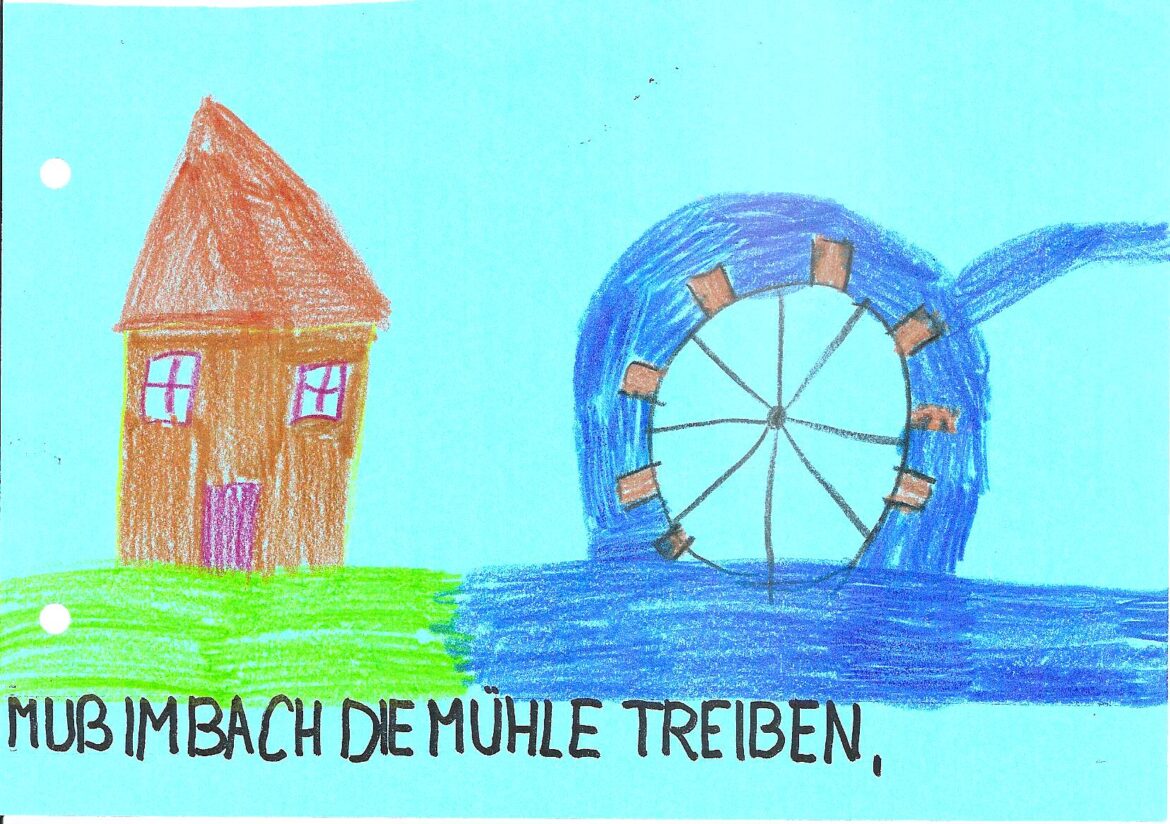 MUß IM BACH DIE MÜHLE TREIBEN,